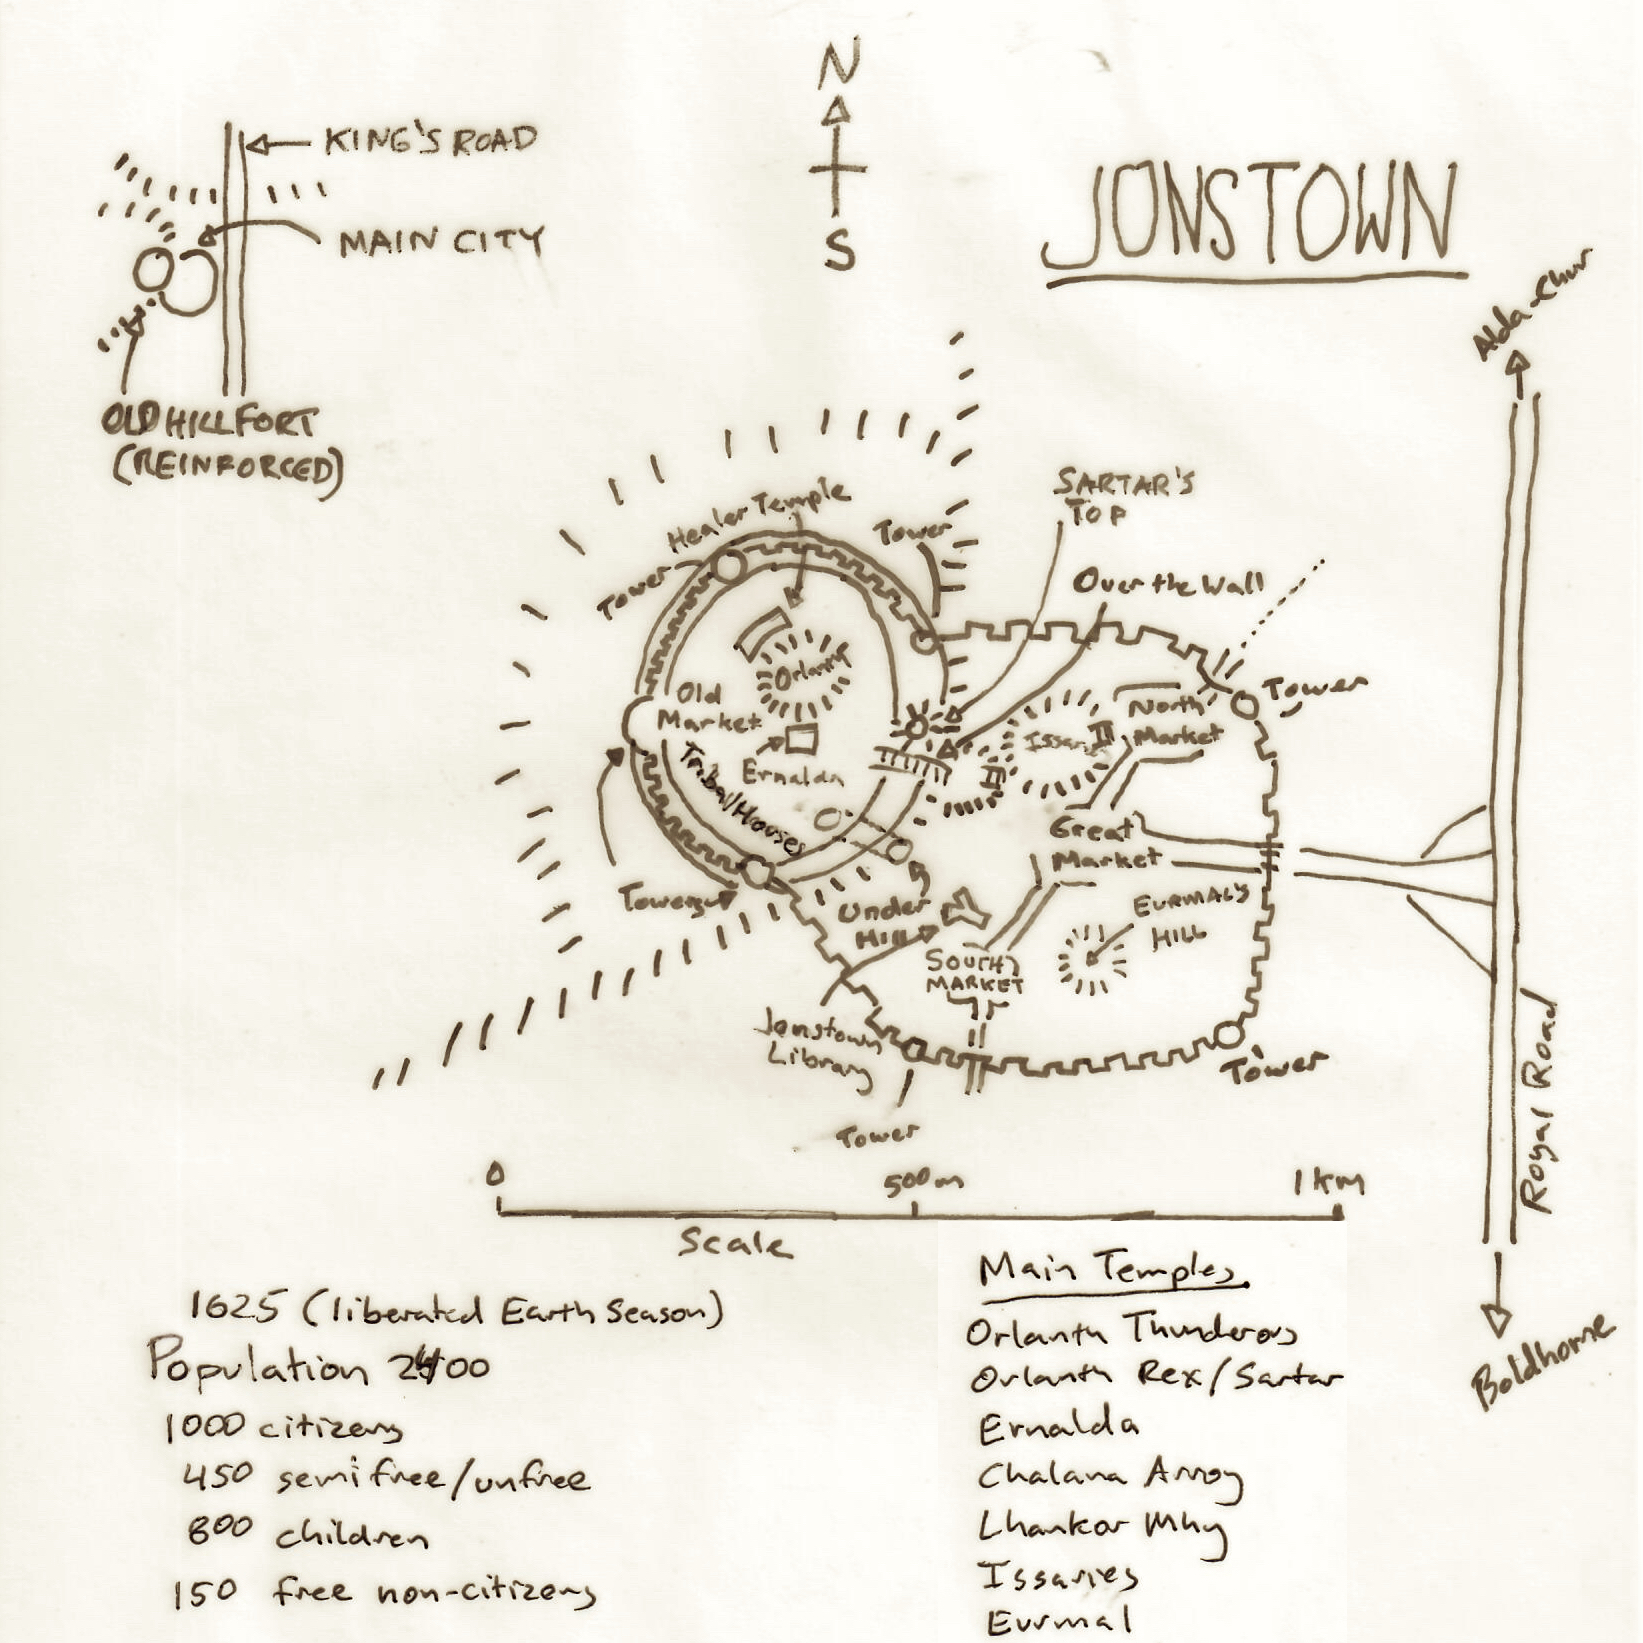 N
KING'S ROAD
JONSTOWN
MAIN CITY
S
Alda-Chur
OLD HILLFORT
(REINFORCED)
SARTAR'S
TOP
Healer Temple
Tower
Tower
Over the Wall
Orlanth
Old
Market
North
Market
Tower
Issaries
Ernaldan
Tribal Houses
Great
Market
Towers
Under
Hill
EURMAL'S
HILL
SOUTH
MARKET
Jonstown
Library
Tower
Tower
Royal Road
0
500m
1km
Scale
Boldhome
1625 (liberated Earth Season)
Population 2400
1000 citizens
450 semifree/unfree
800 children
150 free non-citizens
Main Temples
Orlanth Thunderous
Orlanth Rex/Sartar
Ernalda
Chalana Arroy
Lhankor Mhy
Issaries
Eurmal